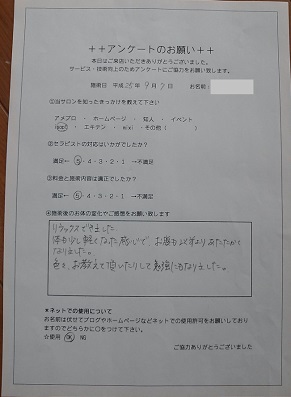 ++アンケートのお願い++
本日はご来店いただきありがとうございました。
サービス・技術向上のためアンケートにご協力をお願い致します。
施術日 平成25年9月7日 お名前:
①当サロンを知ったきっかけを教えて下さい
アメブロ ・ ホームページ ・ 知人 ・ イベント
・ エキテン ・ mixi ・ その他 ( )
②セラピストの対応はいかがでしたか?
満足← 5・4・3・2・1 →不満足
③料金と施術内容は適正でしたか?
満足← 5・4・3・2・1 →不満足
④施術後のお体の変化やご感想をお願い致します
リラックスできました。
体も少し軽くなった感じで、お腹も以前よりあたたかく
なりました。
色々、お教えて頂いたりして勉強にもなりました。
*ネットでの使用について
お名前は伏せてブログやホームページなどネットでの使用許可をお願いしており
ますのでどちらかに〇をつけて下さい。
☆使用 OK NG
ご協力ありがとうございました